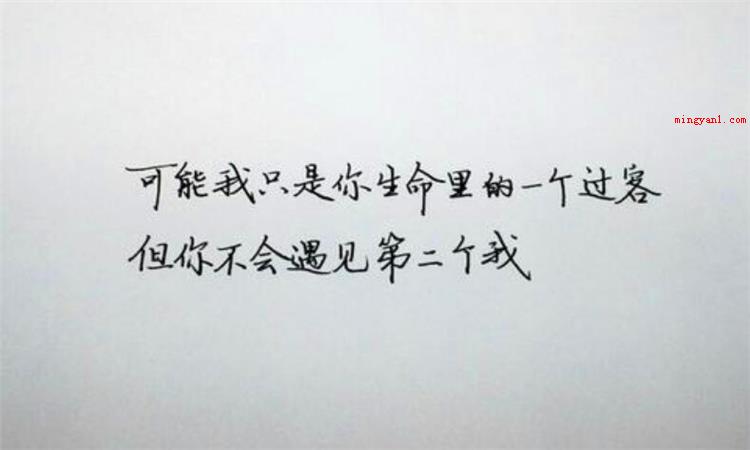 mingyan1.com
可能我只是你生命里的一个过客
但你不会遇见第二个我